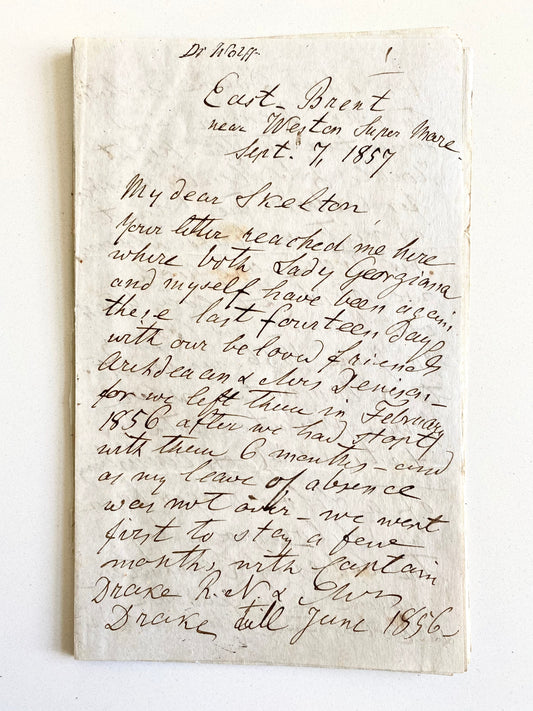 Dr Wolff
1.
East-Brent
near Weston Super Mare-
Sept. 7, 1857.
My dear Skelton,
Your letter reached me here
where both Lady Georgiana
and myself have been again
these last fourteen Days
with our beloved friends
Archdeacan & Mrs Denison-
for we left them in February
1856 after we had stopt
with them 6 months - and
as my leave of absence
was not over - we went
first to stay a few
months, with Captain
Drake R.N. & Mrs
Drake till June 1856-